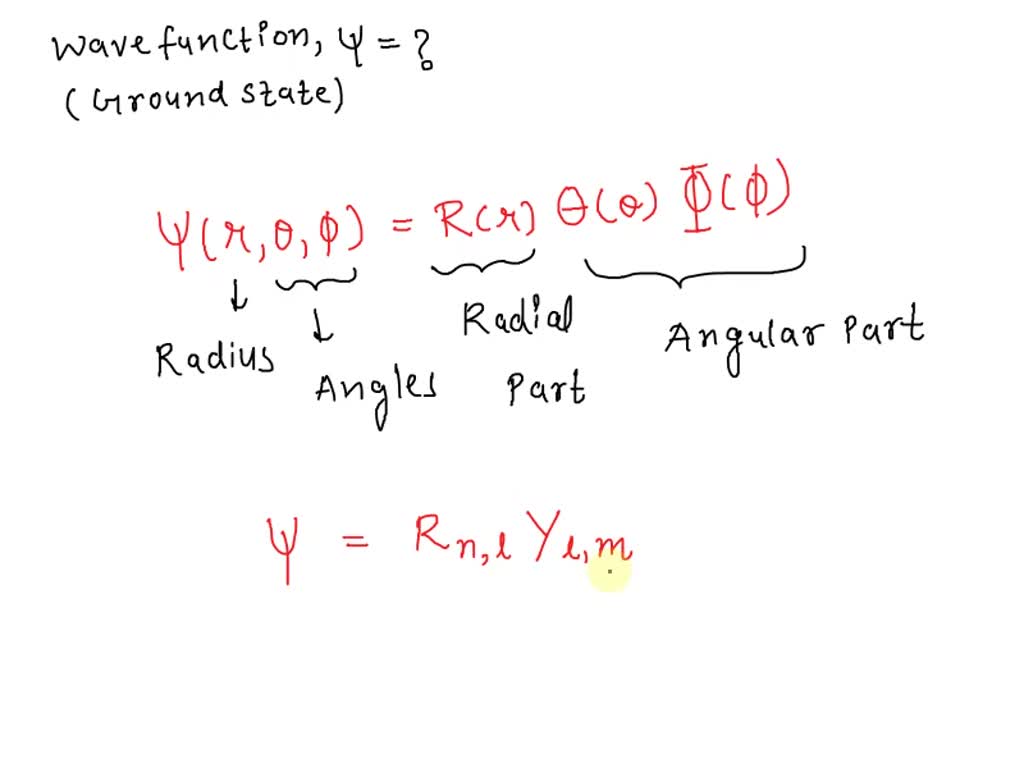 Wavefunction, Ψ = ?
(Ground state)
Ψ(r, θ, ϕ) = R(r) Θ(θ) Φ(ϕ)
Radius
Angles
Radial Part
Angular Part
Ψ = R n,l Y l,m